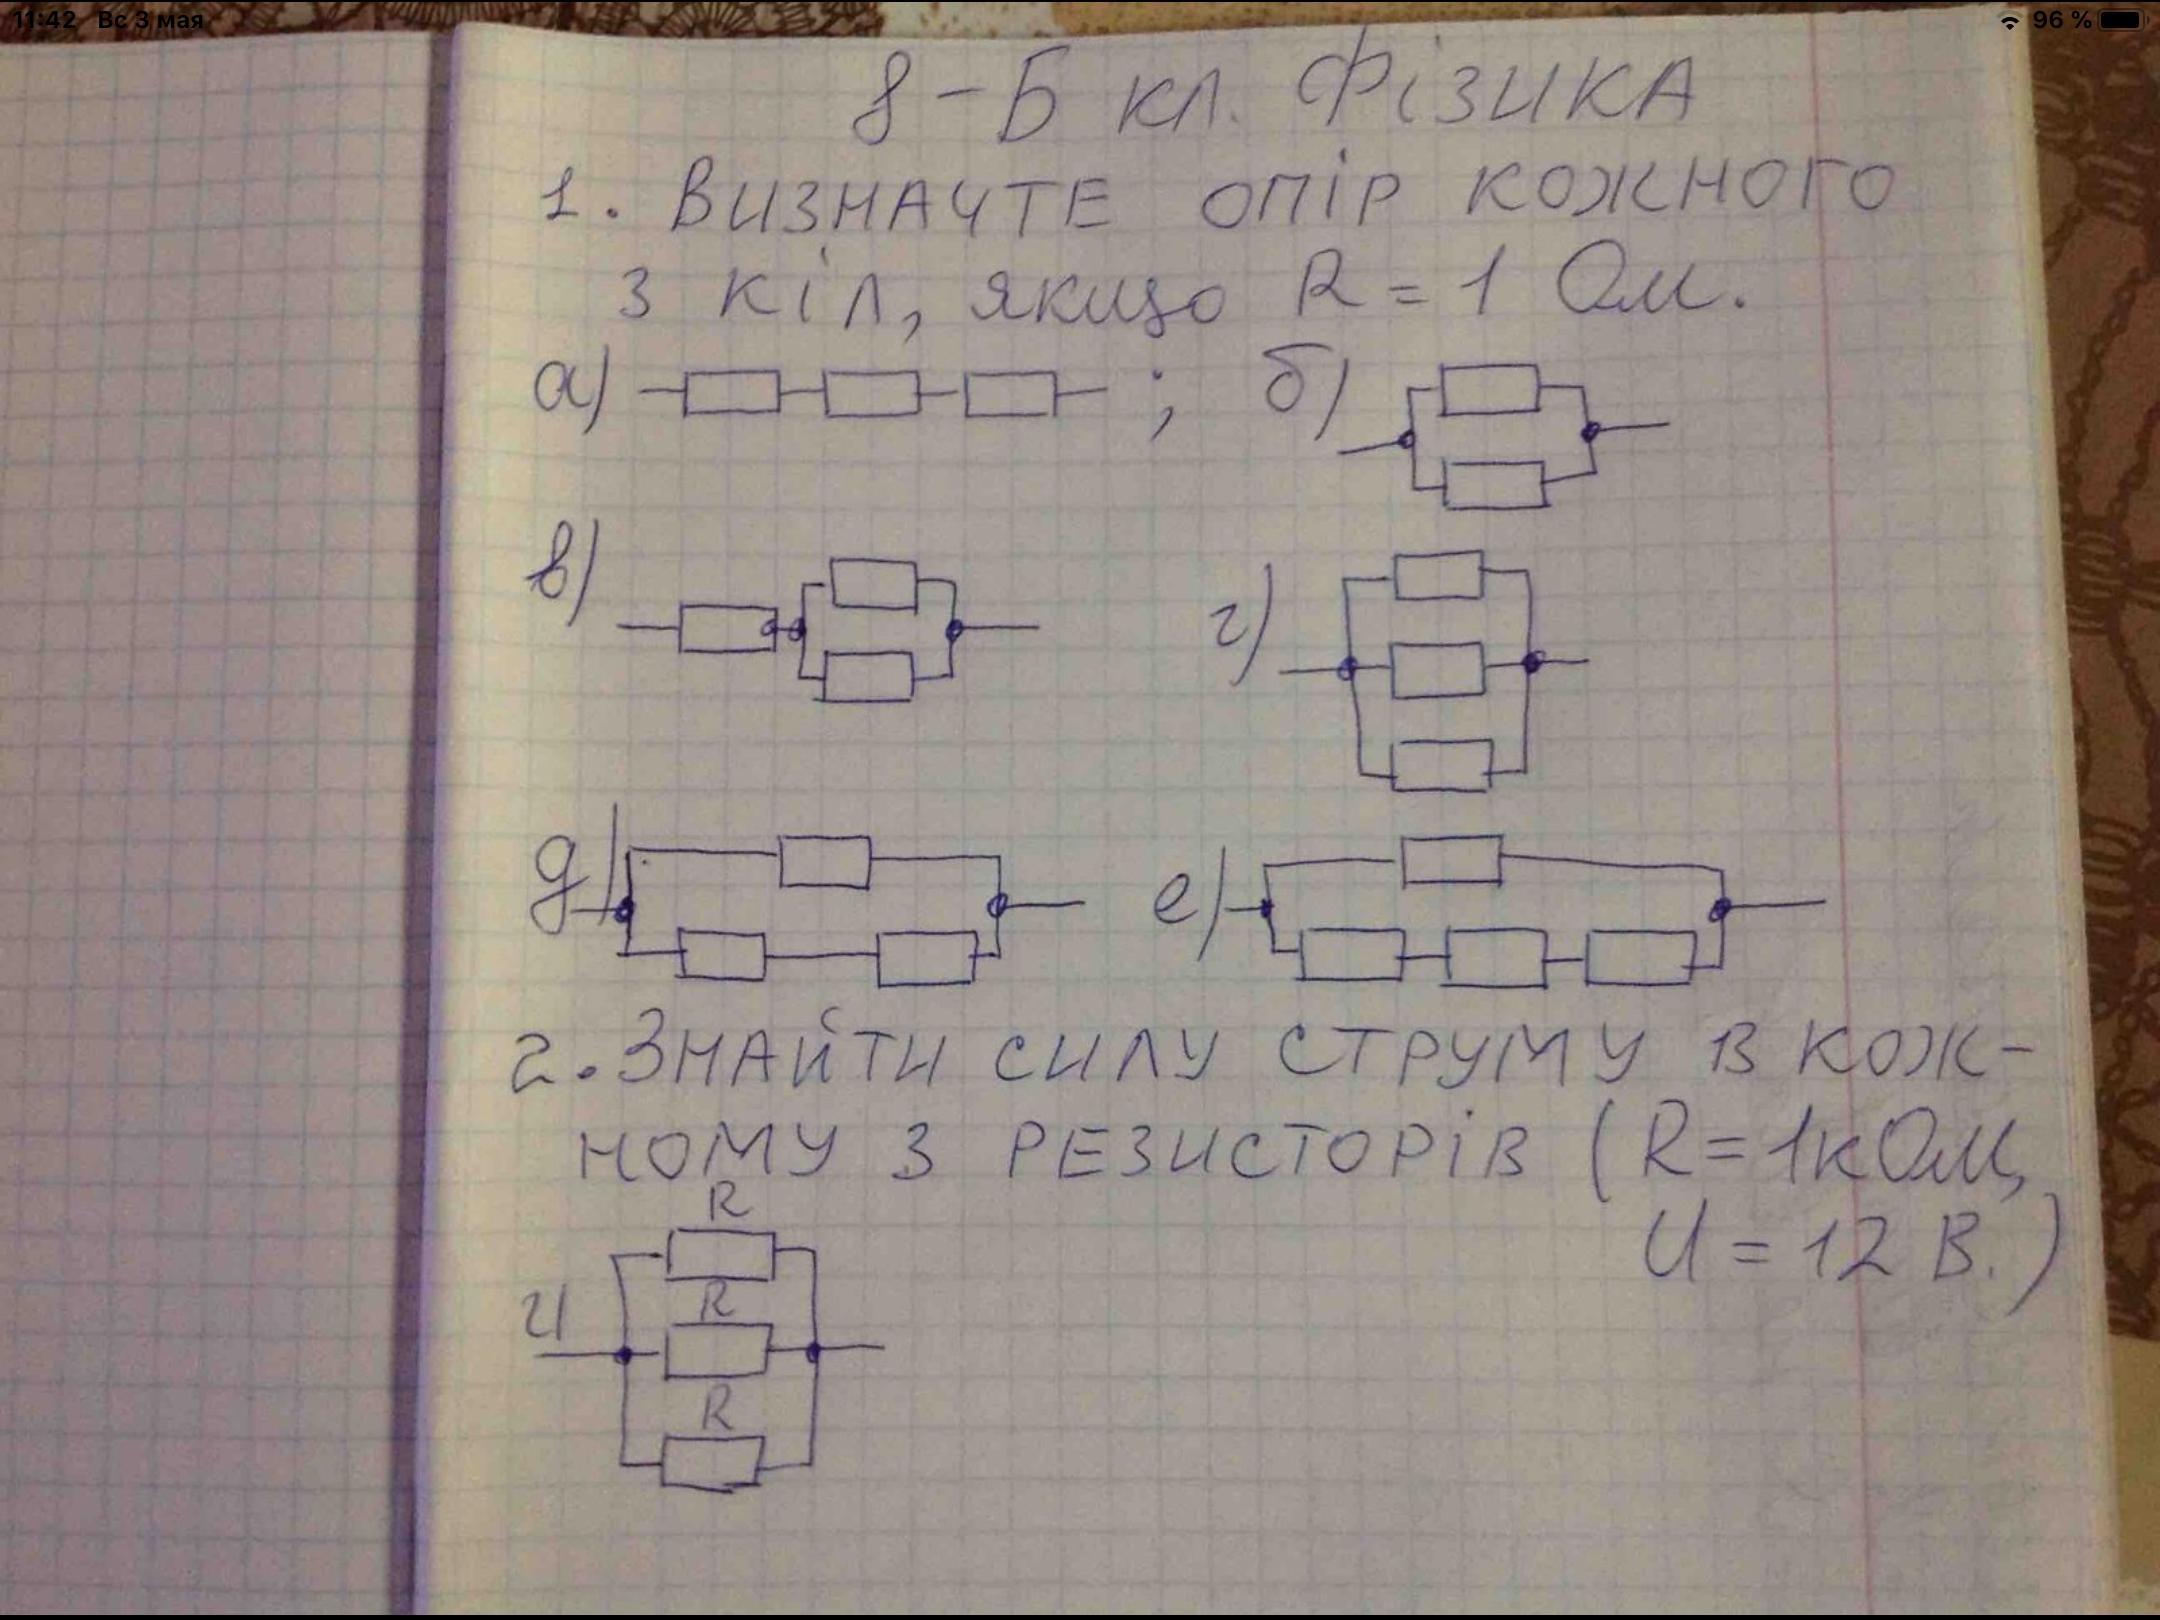 11:42 Вс 3 мая 96 %
8-Б кл. Фізика
1. Визначте опір кожного
з кіл, якщо R = 1 Ом.
а) ; б)
в) г)
д) е)
2. Знайти силу струму в кож-
ному з резисторів (R = 1 кОм,
U = 12 В.)
R
R
R